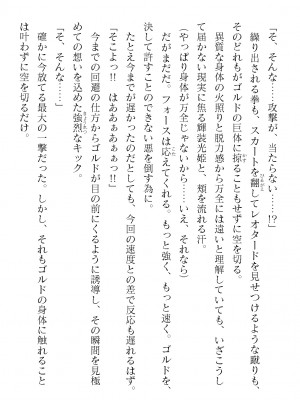 「そ、そんな……攻撃が、当たらない……!?」
繰り出される拳も、スカートを翻してレオタードを見せつけるような蹴りも、
そのどれもがゴルドの巨体に掠ることもせずに空を切る。
異質な身体の火照りと脱力感から万全には遠いと理解していても、いざこうし
て届かない現実に焦る輝装光姫と、頬を流れる汗。
(やっぱり身体が万全じゃないから……いえ、それなら)
だがまだだ。フォースは応えてくれる。もっと強く、もっと速く。ゴルドを、
決して許すことのできない悪を倒す為に。
たとえ今までが遅かったのだとしても、今回の速度との差で反応も遅れるはず。
「そこよっ!! はああぁぁぁぁっ!!」
今までの回避の仕方からゴルドが目の前にくるように誘導し、その瞬間を見極
めての想いを込めた強烈なキック。
「そ、そんな……」
確かに今放てる最大の一撃だった。しかし、それもゴルドの身体に触れること
は叶わずに空を切るだけ。